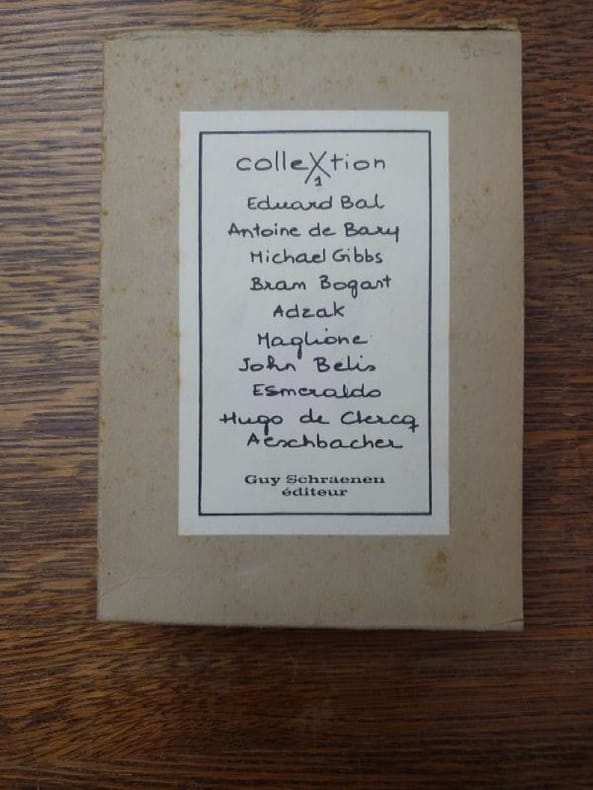 colleXtion
1
Eduard Bal
Antoine de Bary
Michael Gibbs
Bram Bogart
Adzak
Maglione
John Belis
Esmeraldo
Hugo de Clercq
Aeschbacher
Guy Schraenen
éditeur